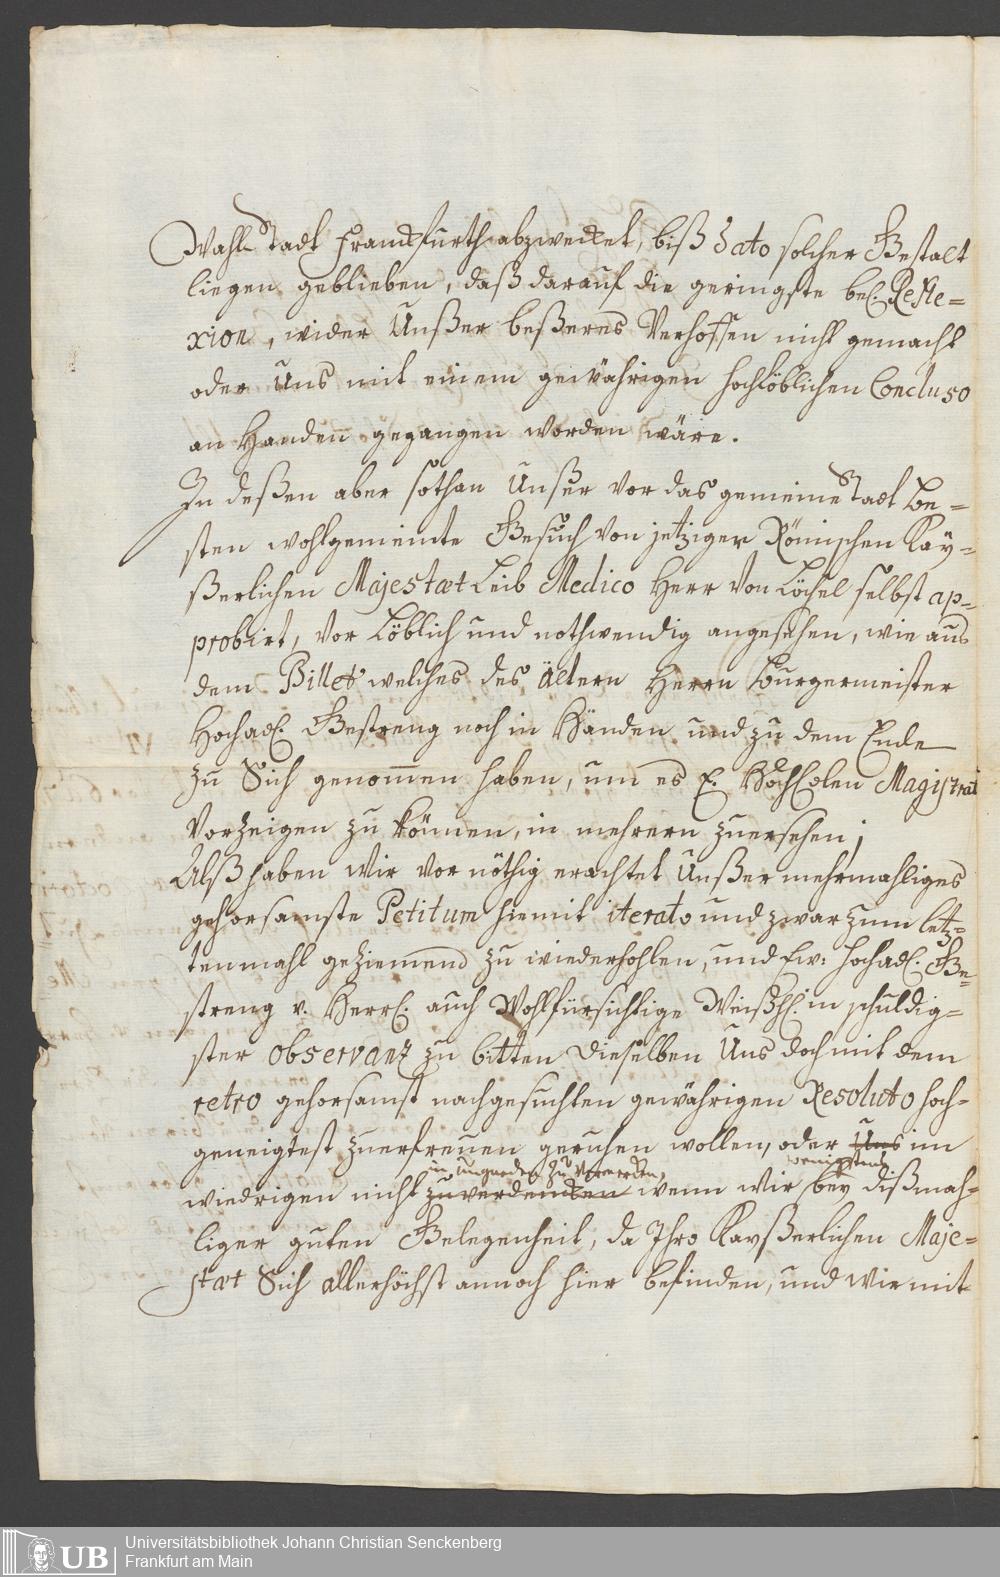 Wahl Stadt Franckfurth abzwecket, biß dato solcher Gestalt
liegen geblieben, daß darauf die geringste bel. Refle=
xion, wider Unßer beßeres Verhoffen nicht gemacht
oder Uns mit einem gewährigen hochlöblichen Concluso
an Handen gegangen worden wäre.
In deßen aber sothan Unßer vor das gemeine Stadt Be=
sten wohlgemeinte Gesuch von jetziger Römischen Kay=
ßerlichen Majestæt Leib Medico Herr von Löchel selbst ap=
probirt, vor Löblich und nothwendig angesehen, wie aus
dem Billet welches des Ältern Herrn Burgermeister
Hochadl. Gestreng noch in Händen und zu dem Ende
zu Sich genommen haben, um es E. HochEdlen Magistrat
vorzeigen zu können, in mehrern zuersehen;
Alß haben wir vor nöthig erachtet Unßer mehrmahliges
gehorsamste Petitum hiemit iterato und zwar zum letz=
tenmahl geziemend zu wiederhohlen, und Ew: Hochadl. Ge=
streng v. Herrl. auch Wohlfürsichtige Weißhl. in schuldig=
ster observanz zu bitten Dieselben Uns doch mit dem
retro gehorsamst nachgesuchten gewährigen Resoluto hoch=
geneigtest zuerfreuen geruhen wollen, oder Uns im
in Ungnaden zu vermercken, wenigstens
wiedrigen nicht zuverdencken wenn wir bey dißmah=
liger guten Gelegenheit, da Ihro Kayßerlichen Maje=
stæt Sich allerhöchst annoch hier befinden, und wir mit
UB
Universitätsbibliothek Johann Christian Senckenberg
Frankfurt am Main